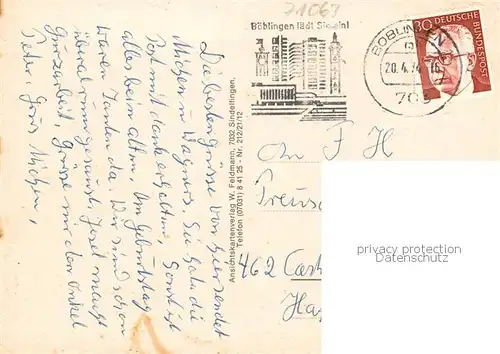 71067
Böblingen lädt Sie ein!
BÖBLINGEN
20.4.74
703
30 DEUTSCHE BUNDESPOST
Die besten Grüsse von hier sendet
Michen u. Wagners. Sie hat die
Post mit dank erhalten, Sonst ist
alles beim alten. Am Geburtstag
waren Tanten da. Wir sind schon
überal rum gesaust. Jesel macht
Gurzarbeit. Grüsse mir den Onkel
Peter, Gruss Michen,
Ansichtskartenverlag W. Feldmann, 7032 Sindelfingen,
Telefon (07031) 8 41 25 - Nr. 212/21/12
F H
462 Cast
privacy protection
Datenschutz